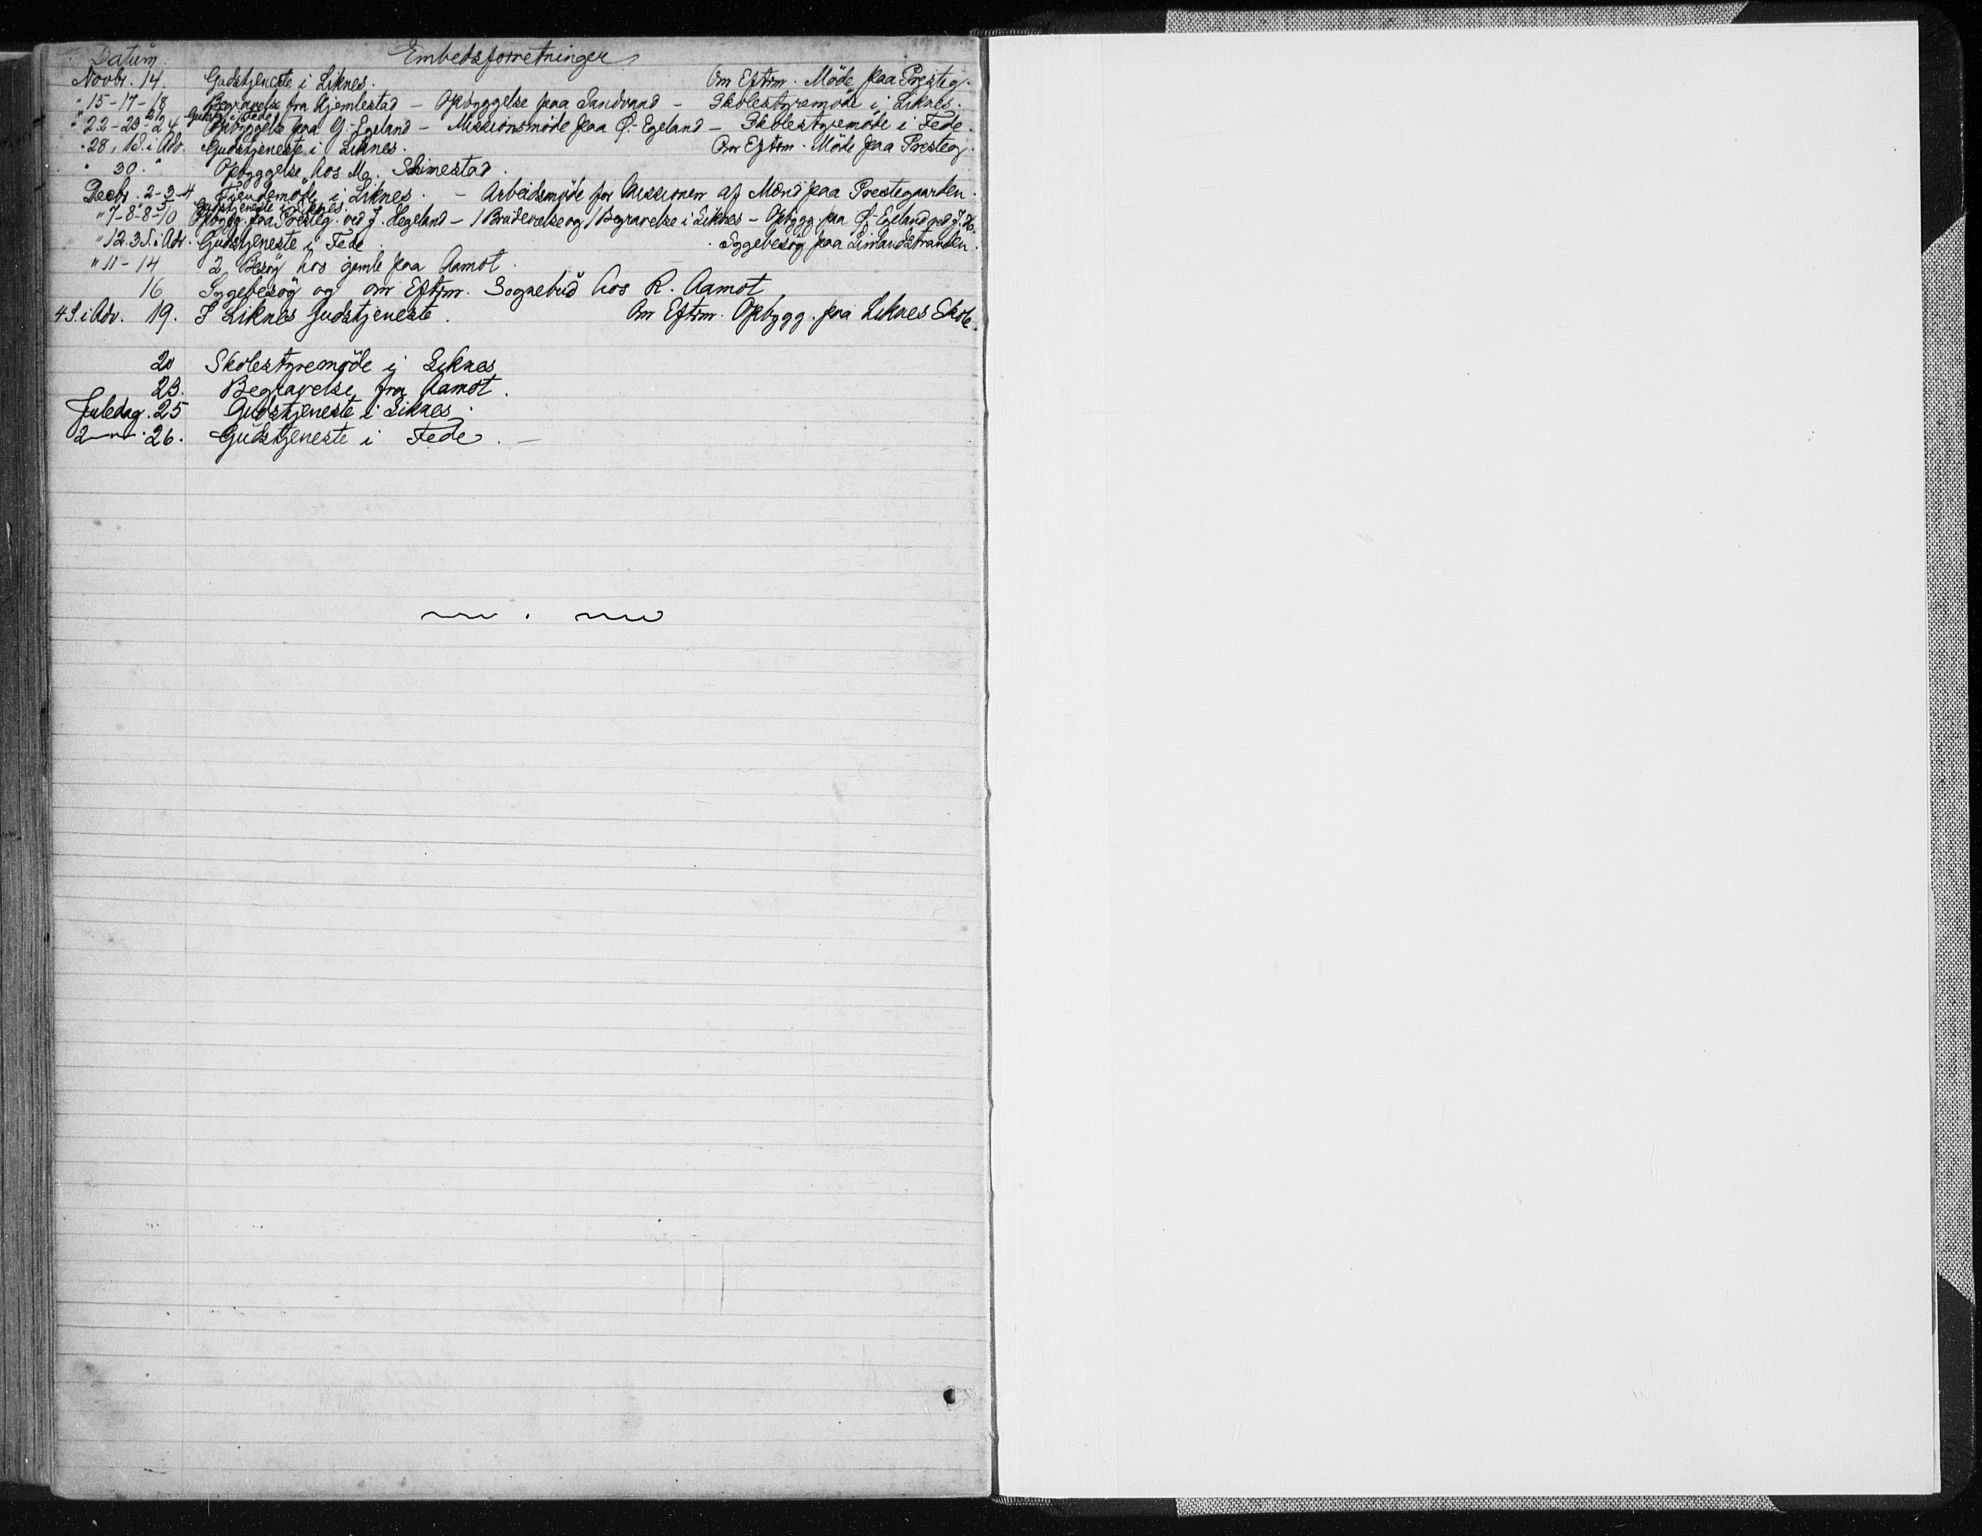 Datum. Embedsforretninger
Novbr. 14 Gudstjeneste i Liknes. Om Eftrm. Möde paa Presteg.
" 15-17-18 Begravelse fra Hjemlestad - Opbyggelse paa Sandvand - Skolestyremøde i Liknes.
21/ Gudstj. i Fede
" 22-23-24 Opbyggelse paa Y.-Egeland - Missionsmøde paa Ø.-Egeland - Skolestyremøde i Fede.
" 28, 1 S. i Adv. Gudstjeneste i Liknes. Om Eftrm. Möde paa Presteg.
" 30. " Opbyggelse hos M. Skimestad.
Decbr. 2-3-4 Møde i Liknes. - Arbeidsmøde for Missionen af Mænd paa Prestegaarden.
5 Gudstjeneste i Liknes.
" 7-8-8-10 Opbygg. paa Presteg. ved J. Hegeland - 1 Brudevielse og 1 Begravelse i Liknes - Opbygg. paa Ø.-Egeland ved J. H.
" 12. 3 S. i Adv. Gudstjeneste i Fede. Sygebesög paa
" 11-14 2 Besög hos gamle paa Aamot.
16 Sygebesög og om Eftrm. Sognebud hos R. Aamot
4 S. i Adv. 19. I Liknes Gudstjeneste. Om Eftrm. Opbygg. paa Liknes Skole.
20 Skolestyremøde i Liknes
23. Begravelse fra Aamot.
Juledag. 25 Gudstjeneste i Liknes.
2 — . 26. Gudstjeneste i Fede. —